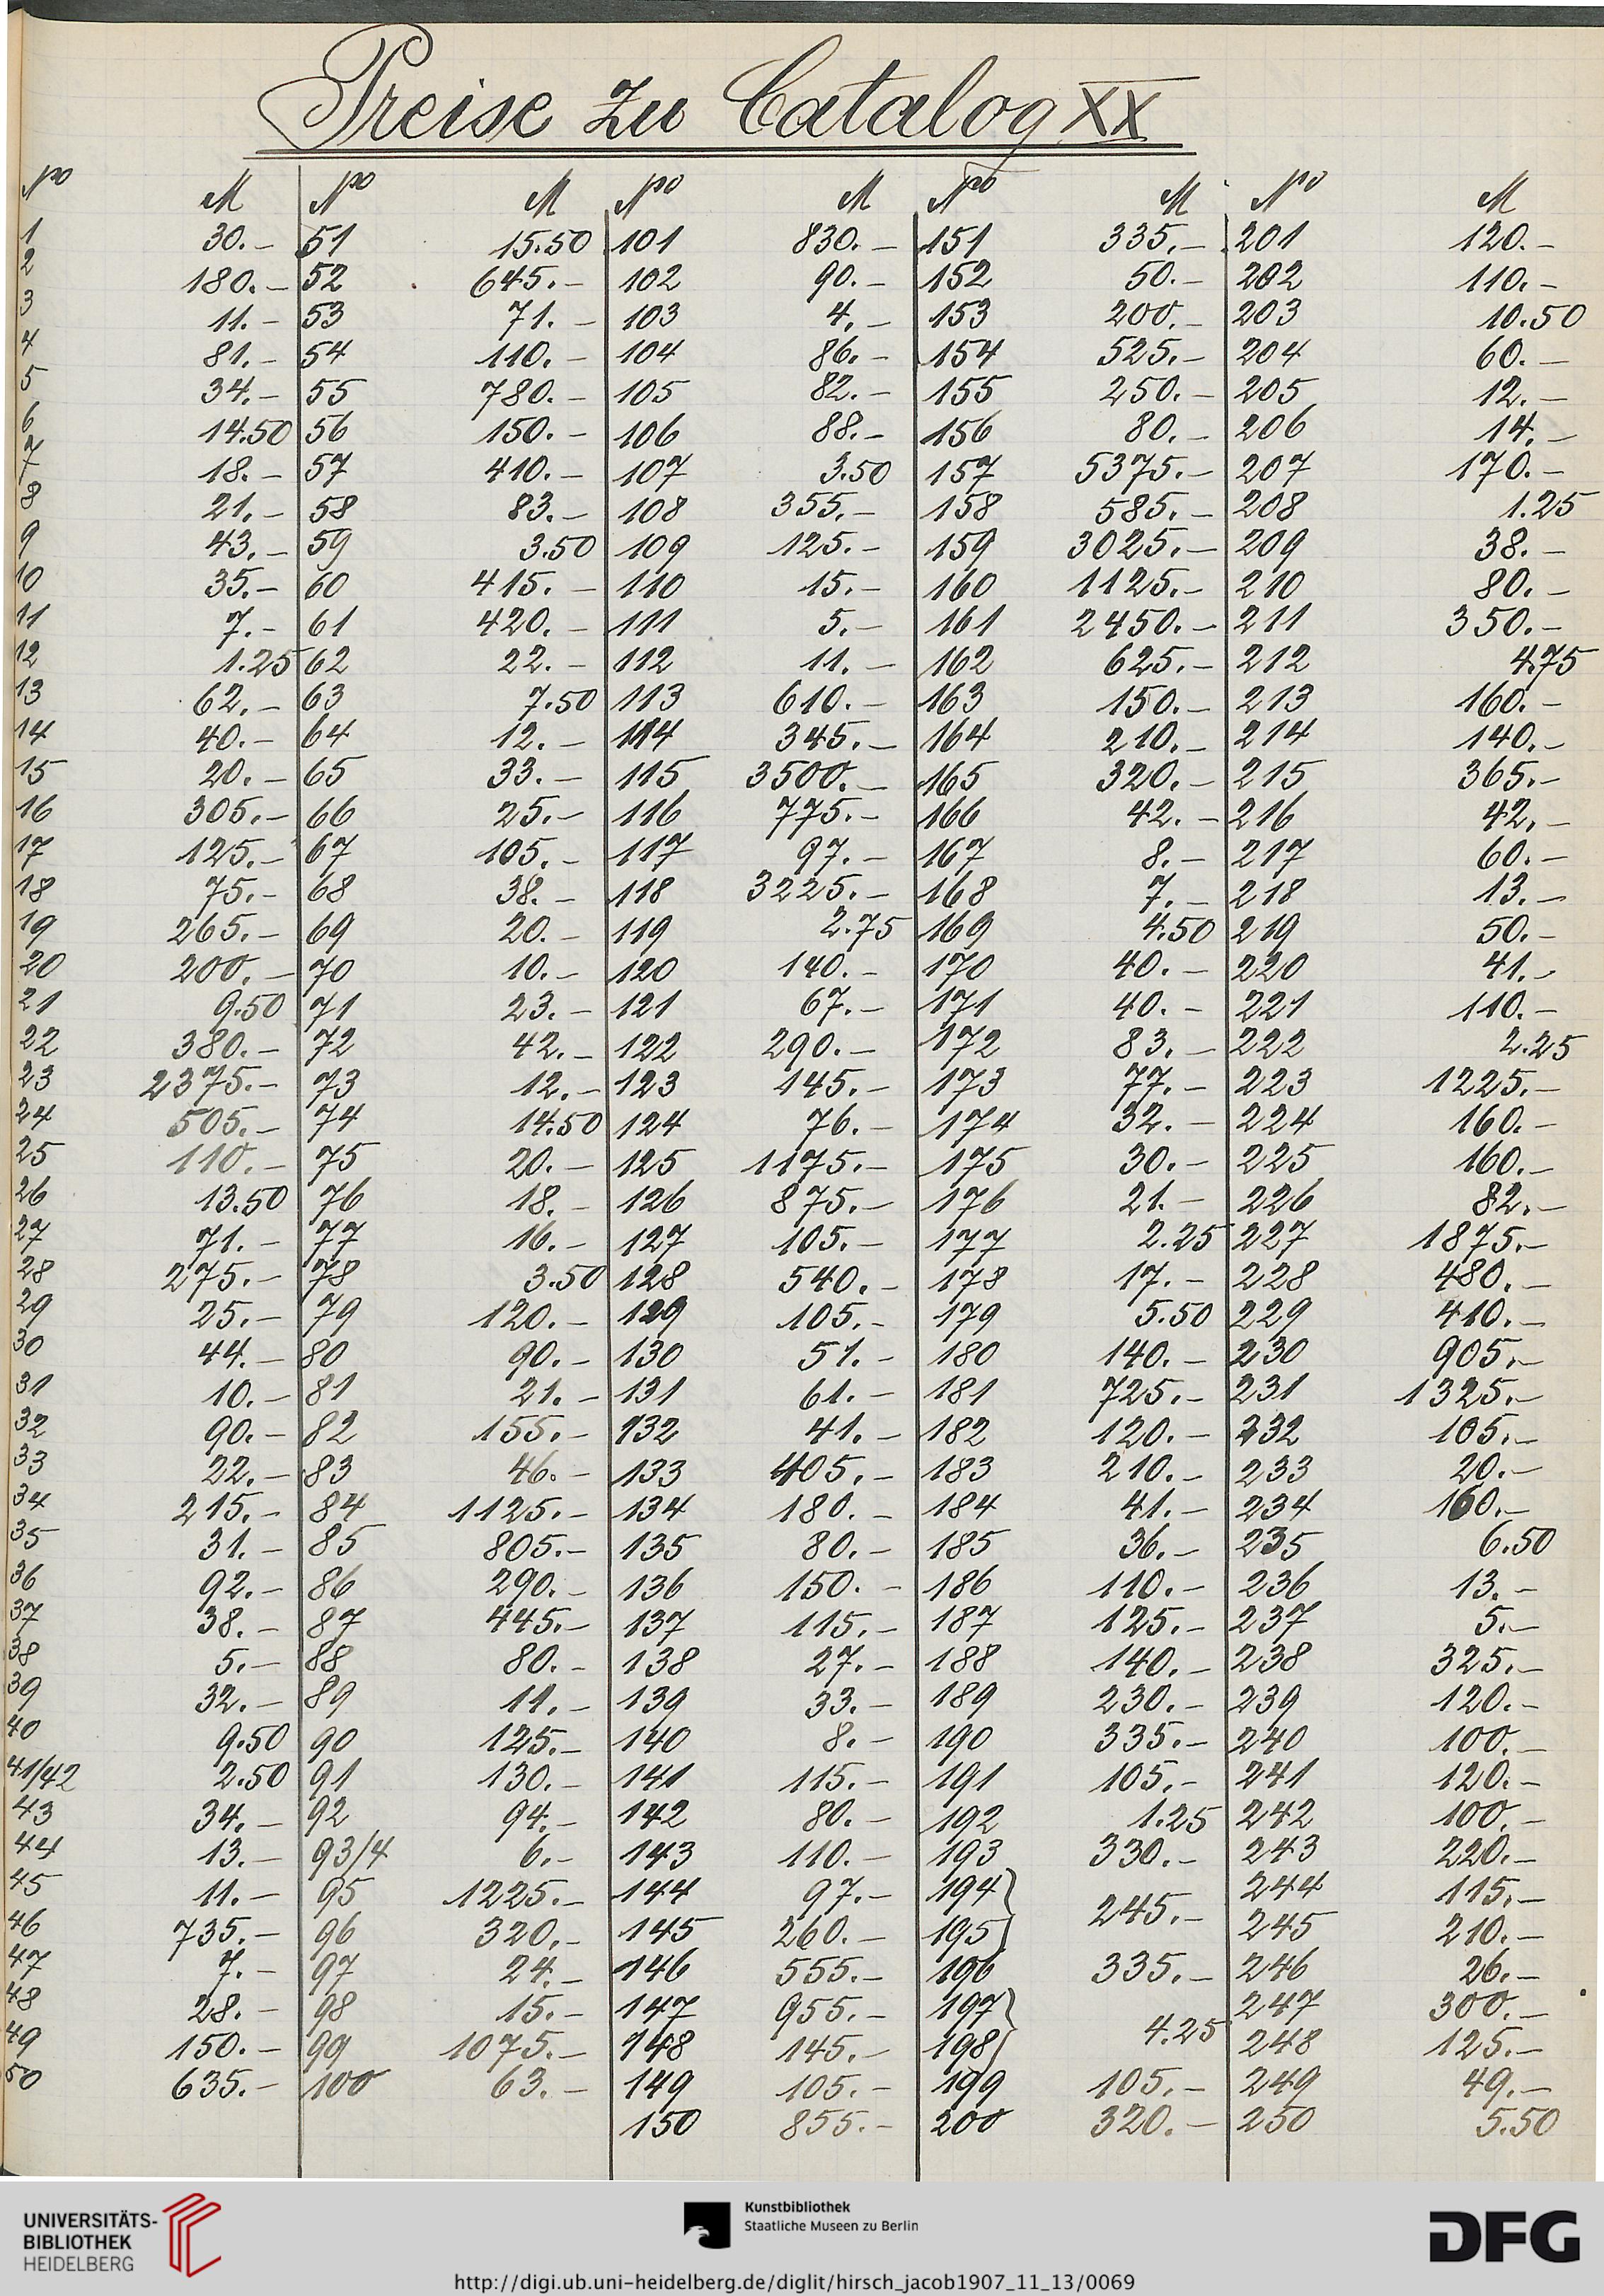 Preise zu Catalog XX
No M No M No M No M No M
1 30.– 51 15.50 101 830.– 151 335.– 201 120.–
2 180.– 52 645.– 102 90.– 152 50.– 202 110.–
3 11.– 53 71.– 103 4.– 153 200.– 203 10.50
4 81.– 54 110.– 104 86.– 154 525.– 204 60.–
5 34.– 55 780.– 105 82.– 155 250.– 205 12.–
6 14.50 56 150.– 106 88.– 156 80.– 206 14.–
7 18.– 57 410.– 107 3.50 157 5375.– 207 170.–
8 21.– 58 83.– 108 355.– 158 585.– 208 1.25
9 43.– 59 3.50 109 125.– 159 3025.– 209 38.–
10 35.– 60 415.– 110 15.– 160 1125.– 210 80.–
11 7.– 61 420.– 111 5.– 161 2450.– 211 350.–
12 1.25 62 22.– 112 11.– 162 625.– 212 4.75
13 62.– 63 7.50 113 610.– 163 150.– 213 160.–
14 40.– 64 12.– 114 345.– 164 210.– 214 140.–
15 20.– 65 33.– 115 3500.– 165 320.– 215 365.–
16 305.– 66 25.– 116 775.– 166 42.– 216 42.–
17 125.– 67 105.– 117 97.– 167 8.– 217 60.–
18 75.– 68 38.– 118 3225.– 168 7.– 218 13.–
19 265.– 69 20.– 119 2.75 169 4.50 219 50.–
20 200.– 70 10.– 120 140.– 170 40.– 220 41.–
21 9.50 71 23.– 121 67.– 171 40.– 221 110.–
22 380.– 72 42.– 122 290.– 172 83.– 222 2.25
23 2375.– 73 12.– 123 145.– 173 77.– 223 1225.–
24 505.– 74 14.50 124 76.– 174 32.– 224 160.–
25 110.– 75 20.– 125 1175.– 175 30.– 225 160.–
26 13.50 76 18.– 126 875.– 176 21.– 226 82.–
27 71.– 77 16.– 127 105.– 177 2.25 227 1875.–
28 275.– 78 3.50 128 540.– 178 17.– 228 480.–
29 25.– 79 120.– 129 105.– 179 5.50 229 410.–
30 44.– 80 90.– 130 51.– 180 140.– 230 905.–
31 10.– 81 21.– 131 61.– 181 725.– 231 1325.–
32 90.– 82 155.– 132 41.– 182 120.– 232 105.–
33 22.– 83 46.– 133 405.– 183 210.– 233 20.–
34 215.– 84 1125.– 134 180.– 184 41.– 234 160.–
35 31.– 85 805.– 135 80.– 185 36.– 235 6.50
36 92.– 86 290.– 136 150.– 186 110.– 236 13.–
37 38.– 87 445.– 137 115.– 187 125.– 237 5.–
38 5.– 88 80.– 138 27.– 188 140.– 238 325.–
39 32.– 89 11.– 139 33.– 189 230.– 239 120.–
40 9.50 90 125.– 140 8.– 190 335.– 240 100.–
41/42 2.50 91 130.– 141 115.– 191 105.– 241 120.–
43 34.– 92 94.– 142 80.– 192 1.25 242 100.–
44 13.– 93/4 6.– 143 110.– 193 330.– 243 220.–
45 11.– 95 1225.– 144 97.– 194 244 115.–
46 735.– 96 320.– 145 260.– 195} 245.– 245 210.–
47 7.– 97 24.– 146 555.– 196 335.– 246 26.–
48 28.– 98 15.– 147 955.– 197 247 300.–
49 150.– 99 1075.– 148 145.– 198} 4.25 248 125.–
50 635.– 100 63.– 149 105.– 199 105.– 249 49.–
150 855.– 200 320.– 250 5.50
UNIVERSITÄTS-
BIBLIOTHEK
HEIDELBERG
Kunstbibliothek
Staatliche Museen zu Berlin
DFG
http://digi.ub.uni-heidelberg.de/diglit/hirsch_jacob1907_11_13/0069